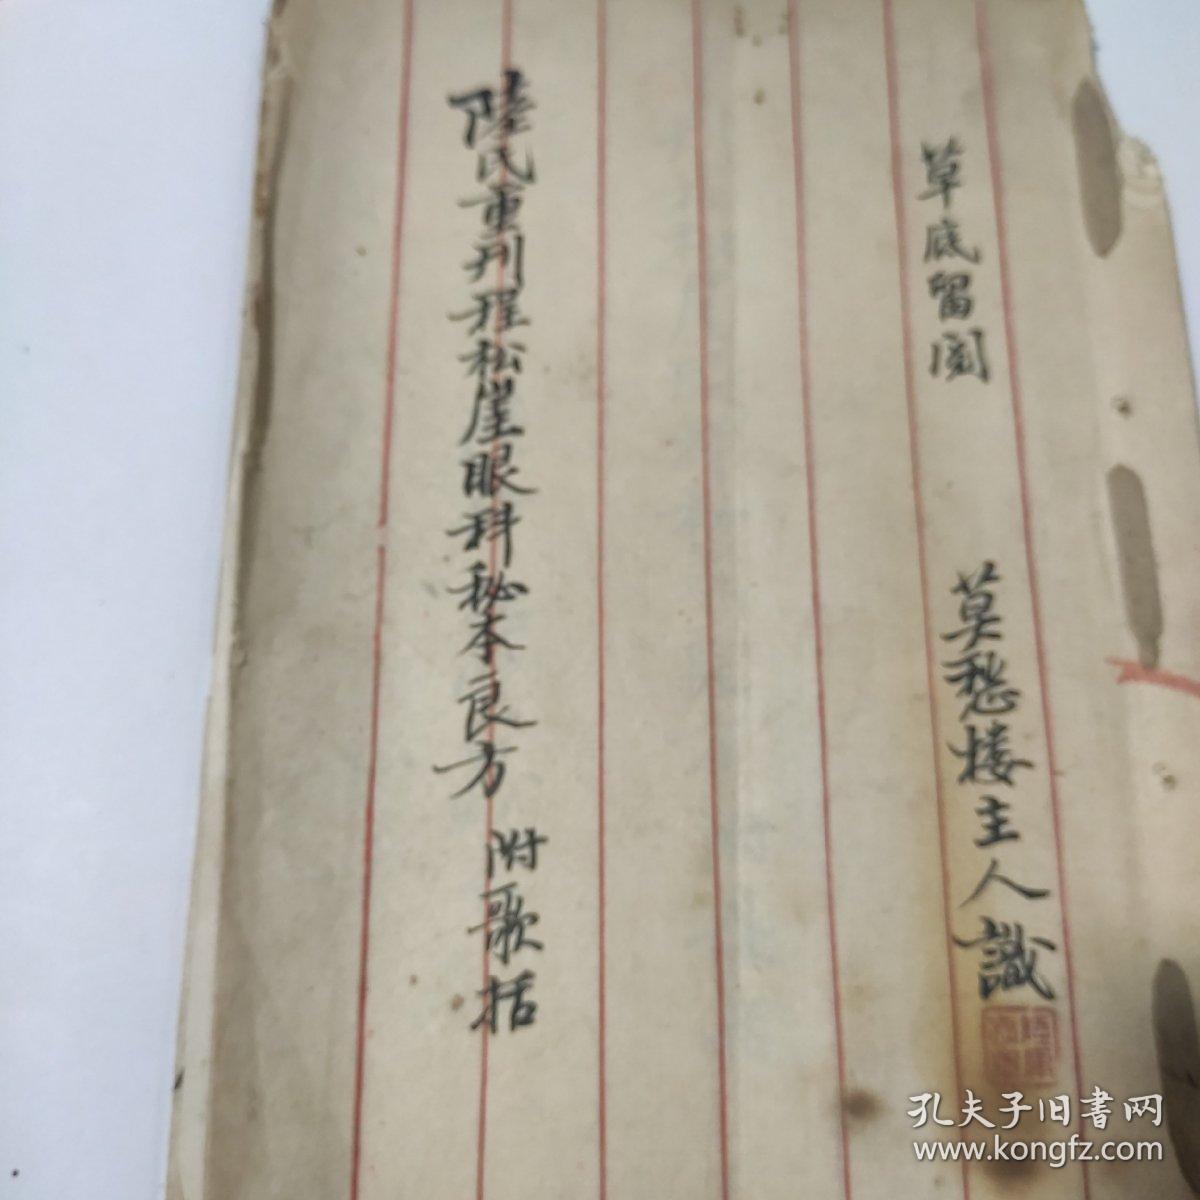 草底留閱
莫愁楼主人識
陸氏重刋程松崖眼科秘本良方 附歌括
孔夫子旧書网
www.kongfz.com